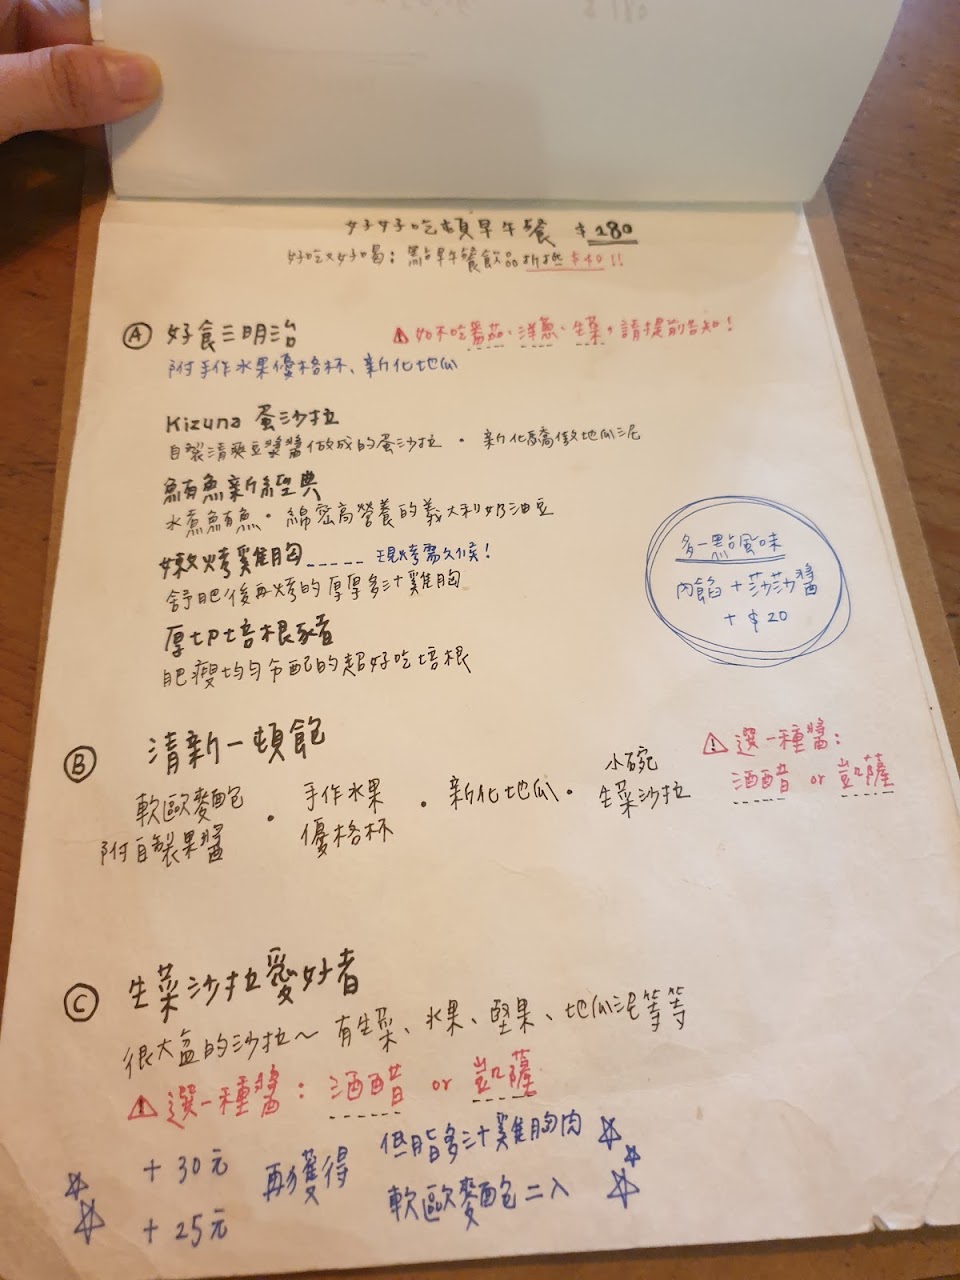 好好吃頓早午餐 $180
好吃又好喝：點早午餐飲品折抵$40!!
Ⓐ 好食三明治
⚠ 如不吃番茄、洋蔥、生菜，請提前告知！
附手作水果優格杯、新化地瓜
Kizuna 蛋沙拉
自製清爽豆漿醬做成的蛋沙拉・新化驕傲地瓜泥
鮪魚新經典
水煮鮪魚・綿密高營養的義大利奶油豆
嫩烤雞胸-----現烤需久候！
舒肥後再烤的厚厚多汁雞胸
厚切培根豬
肥瘦均勻分配的超好吃培根
多一點風味
內餡＋莎莎醬
＋$20
Ⓑ 清新一頓飽
軟歐麥麵包
附自製果醬
・手作水果
優格杯
・新化地瓜・
小碗
生菜沙拉
⚠ 選一種醬：
油醋 or 凱薩
Ⓒ 生菜沙拉愛好者
很大盆的沙拉～有生菜、水果、堅果、地瓜泥等等
⚠ 選一種醬：油醋 or 凱薩
＋30元 再獲得 低脂多汁雞胸肉
＋25元 軟歐麥麵包二入